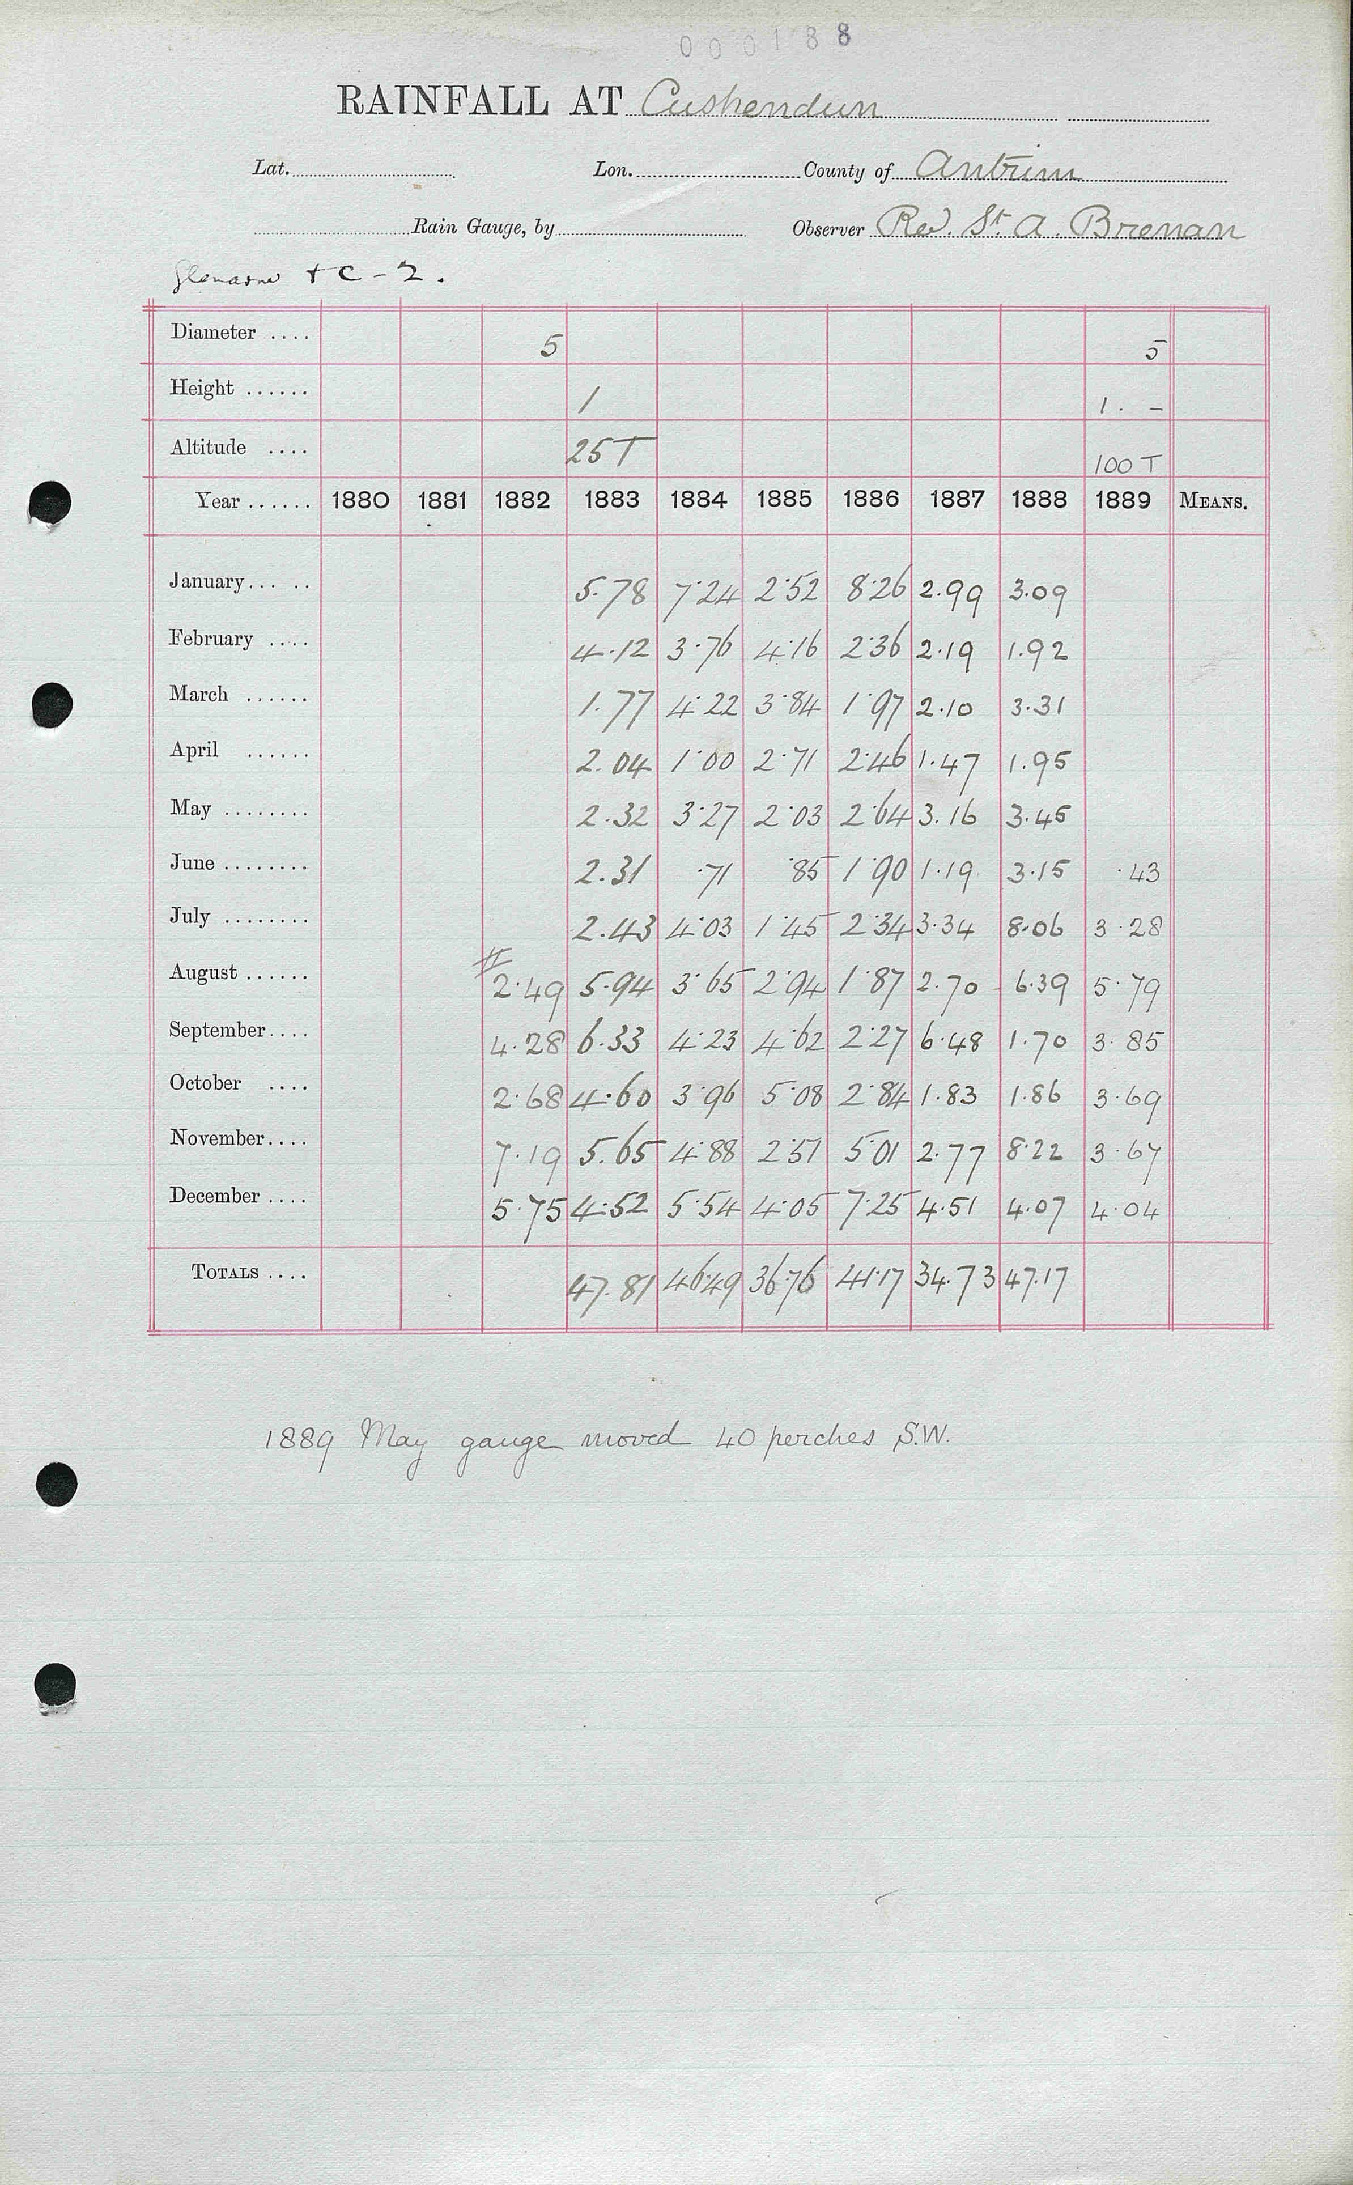 000188
RAINFALL AT Cushendun
Lat. Lon. County of Antrim
Rain Gauge, by Observer Rev. St. A. Brenan
+ C - 2.
Diameter .... 5 5
Height ...... 1 1. -
Altitude .... 25 T 100 T
Year ...... 1880 1881 1882 1883 1884 1885 1886 1887 1888 1889 MEANS.
January... .. 5.78 7.24 2.52 8.26 2.99 3.09
February .... 4.12 3.76 4.16 2.36 2.19 1.92
March ...... 1.77 4.22 3.84 1.97 2.10 3.31
April ...... 2.04 1.00 2.71 2.46 1.47 1.95
May ........ 2.32 3.27 2.03 2.64 3.16 3.45
June ........ 2.31 .71 .85 1.90 1.19 3.15 .43
July ........ 2.43 4.03 1.45 2.34 3.34 8.06 3.28
August ...... # 2.49 5.94 3.65 2.94 1.87 2.70 6.39 5.79
September.... 4.28 6.33 4.23 4.62 2.27 6.48 1.70 3.85
October .... 2.68 4.60 3.96 5.08 2.84 1.83 1.86 3.69
November.... 7.19 5.65 4.88 2.51 5.01 2.77 8.22 3.67
December .... 5.75 4.52 5.54 4.05 7.25 4.51 4.07 4.04
TOTALS .... 47.81 46.49 36.76 41.17 34.73 47.17
1889 May gauge moved 40 perches S.W.